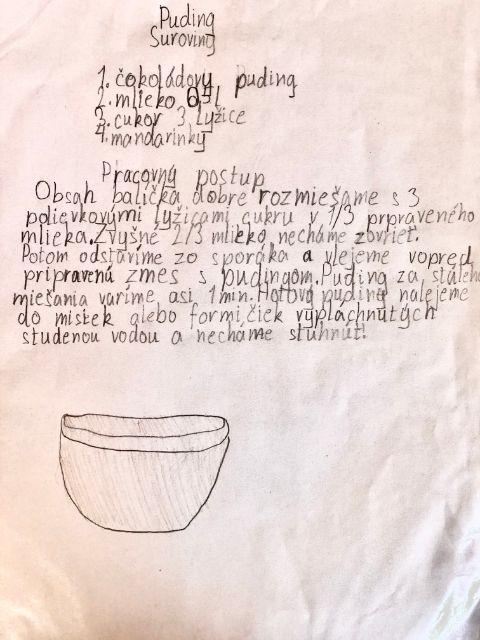 Puding
Suroviny
1. čokoládovy puding
2. mlieko 0,5 l
3. cukor 3 lyžice
4. mandarinky
Pracovný postup
Obsah balíčka dobre rozmiešame s 3
polievkovými lyžicami cukru v 1/3 prpraveného
mlieka. Zvyšné 2/3 mlieko necháme zovrieť.
Potom odstavíme zo sporáka a vlejeme vopred
pripravenú zmes s pudingom. Puding za stáleho
miešania varíme asi 1 min. Hotový puding nalejeme
do mistek alebo formičiek vypláchnutých
studenou vodou a necháme stuhnúť!